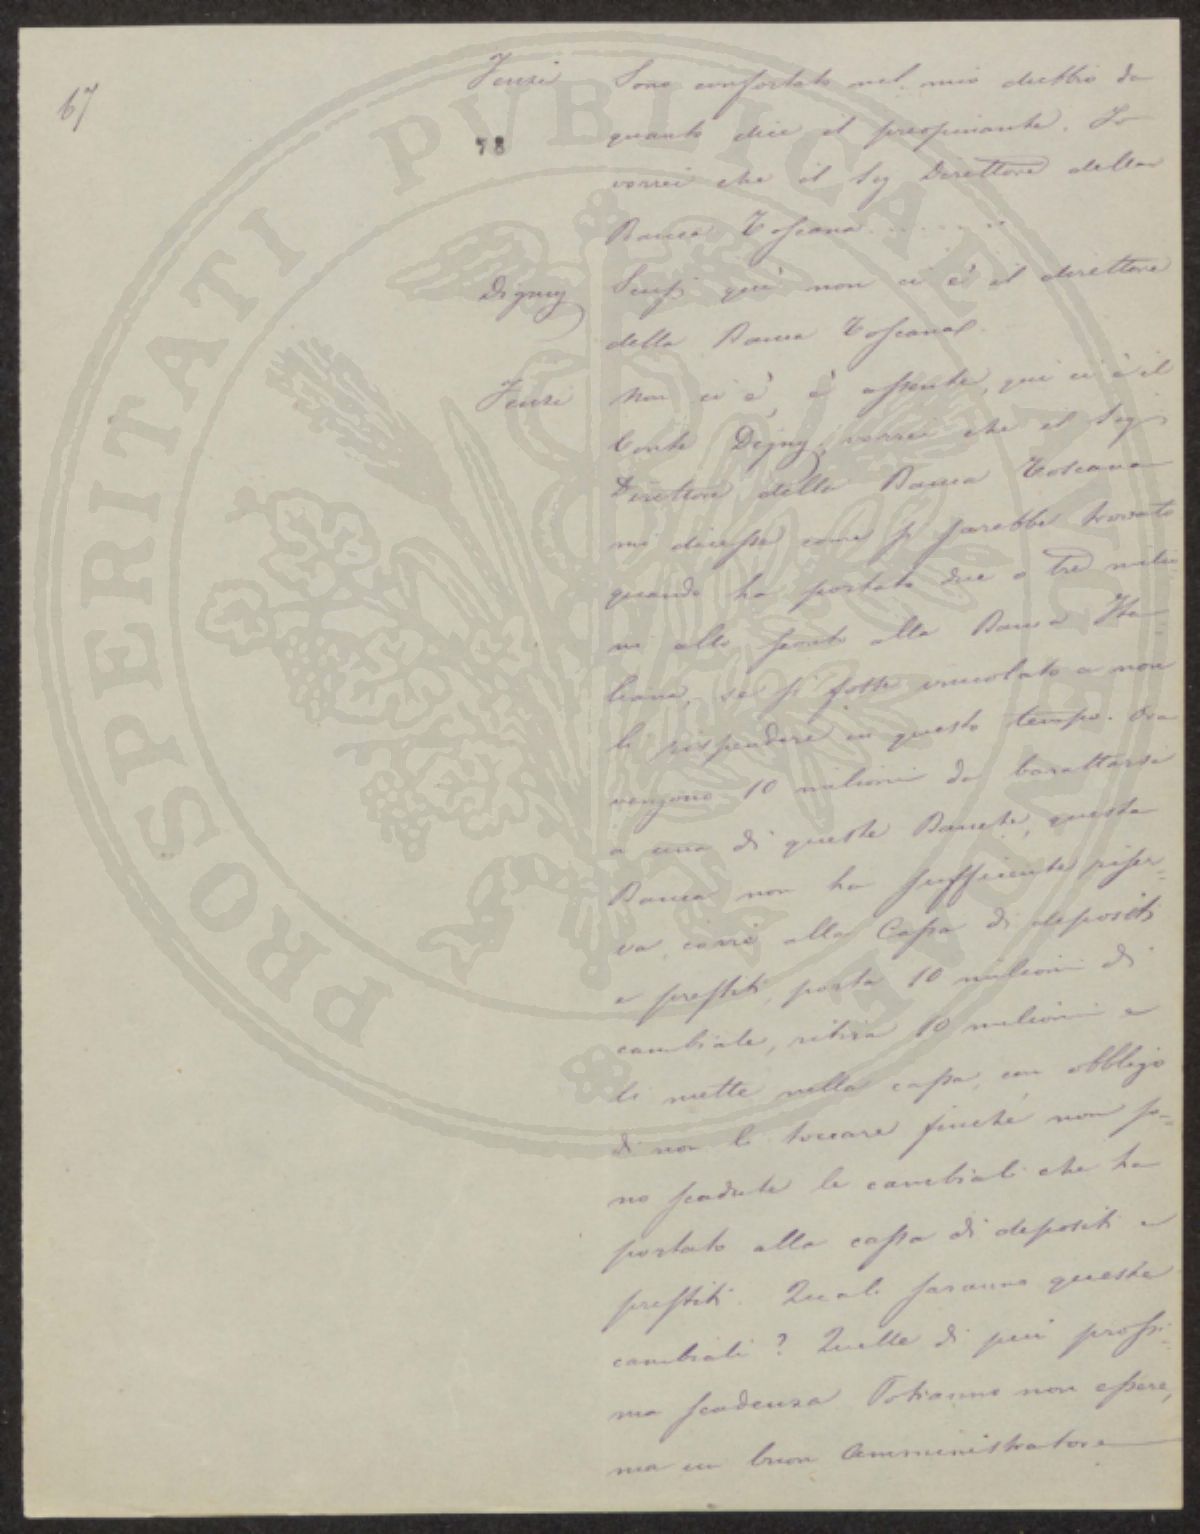 67
Fenzi Sono confortato nel mio dubbio da
78 quanto dice il preopinante. Io
vorrei che il Sig Direttore della
Banca Toscana . . . . . . .
Digny Scusi qui non ci è il direttore
della Banca Toscana.
Fenzi Non ci è, è assente, qui ci è il
Conte Digny, vorrei che il Sig.
Direttore della Banca Toscana
mi dicesse come si sarebbe trovato
quando ha portato due o tre milio
ni allo sconto alla Banca Ita-
liana, se si fosse vincolato a non
li rispendere in questo tempo. Ora
vengono 10 milioni da barattarsi
a una di queste Banche, questa
Banca non ha sufficiente riser-
va, corre alla Cassa di depositi
e prestiti, porta 10 milioni di
cambiale, ritira 10 milioni e
li mette nella cassa, con obbligo
di non li toccare finché non so-
no scadute le cambiali che ha
portato alla cassa di depositi e
prestiti. Quali saranno queste
cambiali? Quelle di più prossi-
ma scadenza Potranno non essere,
ma un buon Amministratore
PROSPERITATI PUBLICAE AUGENDAE